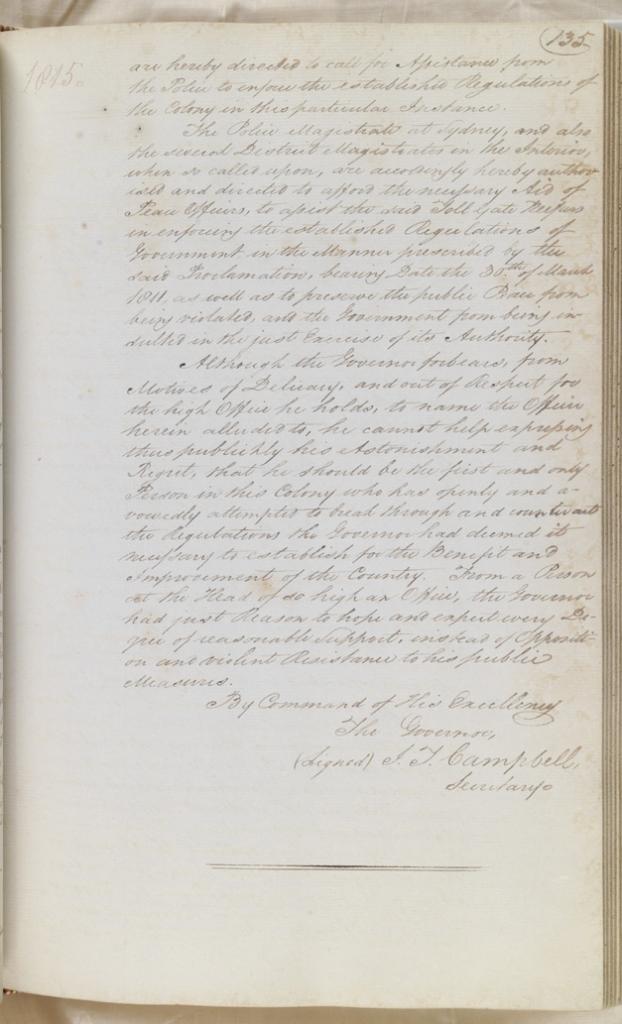 135
1815.
are hereby directed to call for Assistance from
the Police to enforce the established Regulations of
the Colony in this particular Instance.
The Police Magistrate at Sydney, and also
the several District Magistrates in the Interior,
when so called upon, are accordingly hereby author
ized and directed to afford the necessary Aid of
Peace Officers, to assist the said Toll Gate Keepers
in enforcing the established Regulations of
Government in the Manner prescribed by the
said Proclamation, bearing Date the 30th of March
1811, as well as to preserve the public Peace from
being violated, and the Government from being in-
sulted in the just Exercise of its Authority.
Although the Governor forbears, from
Motives of Delicacy, and out of Respect for
the high Office he holds, to name the Officer
herein alluded to, he cannot help expressing
thus publickly his Astonishment and
Regret, that he should be the first and only
Person in this Colony who has openly and a-
vowedly attempted to break through and counteract
the Regulations the Governor had deemed it
necessary to establish for the Benefit and
Improvement of the Country. From a Person
at the Head of so high an Office, the Governor
had just Reason to hope and expect every De-
gree of reasonable Support, instead of Oppositi-
on and violent Resistance to his public
Measures.
By Command of His Excellency
The Governor,
(Signed) J. T. Campbell,
Secretary